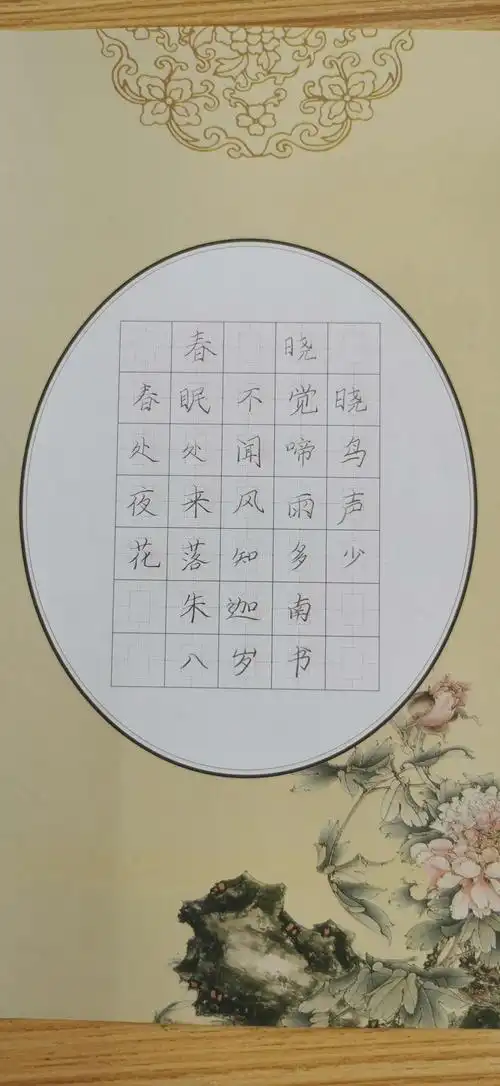 春晓
春眠不觉晓
处处闻啼鸟
夜来风雨声
花落知多少
朱迦南
八岁书